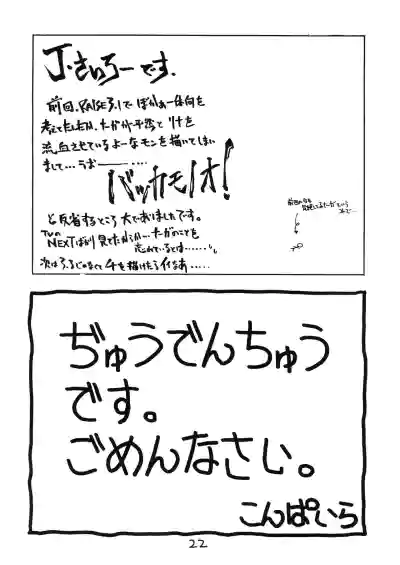 J・さいろーです.
前回、RAISE3.1でぼかぁ一体何を
考えてたんだ、たかが平秀と リナを
流血させているよーなモンを描いてしまい
まして…うおー……
バッカモノオ!
と反省するところ大でありましたです。
TVの
NEXTばかり見てたからか…たかのことを
忘れているとは……
次は3.3じゃなくて4を描けたらイイなあ……
ぢゅうでんちゅう
です。
ごめんなさい。
こんぱいら
22